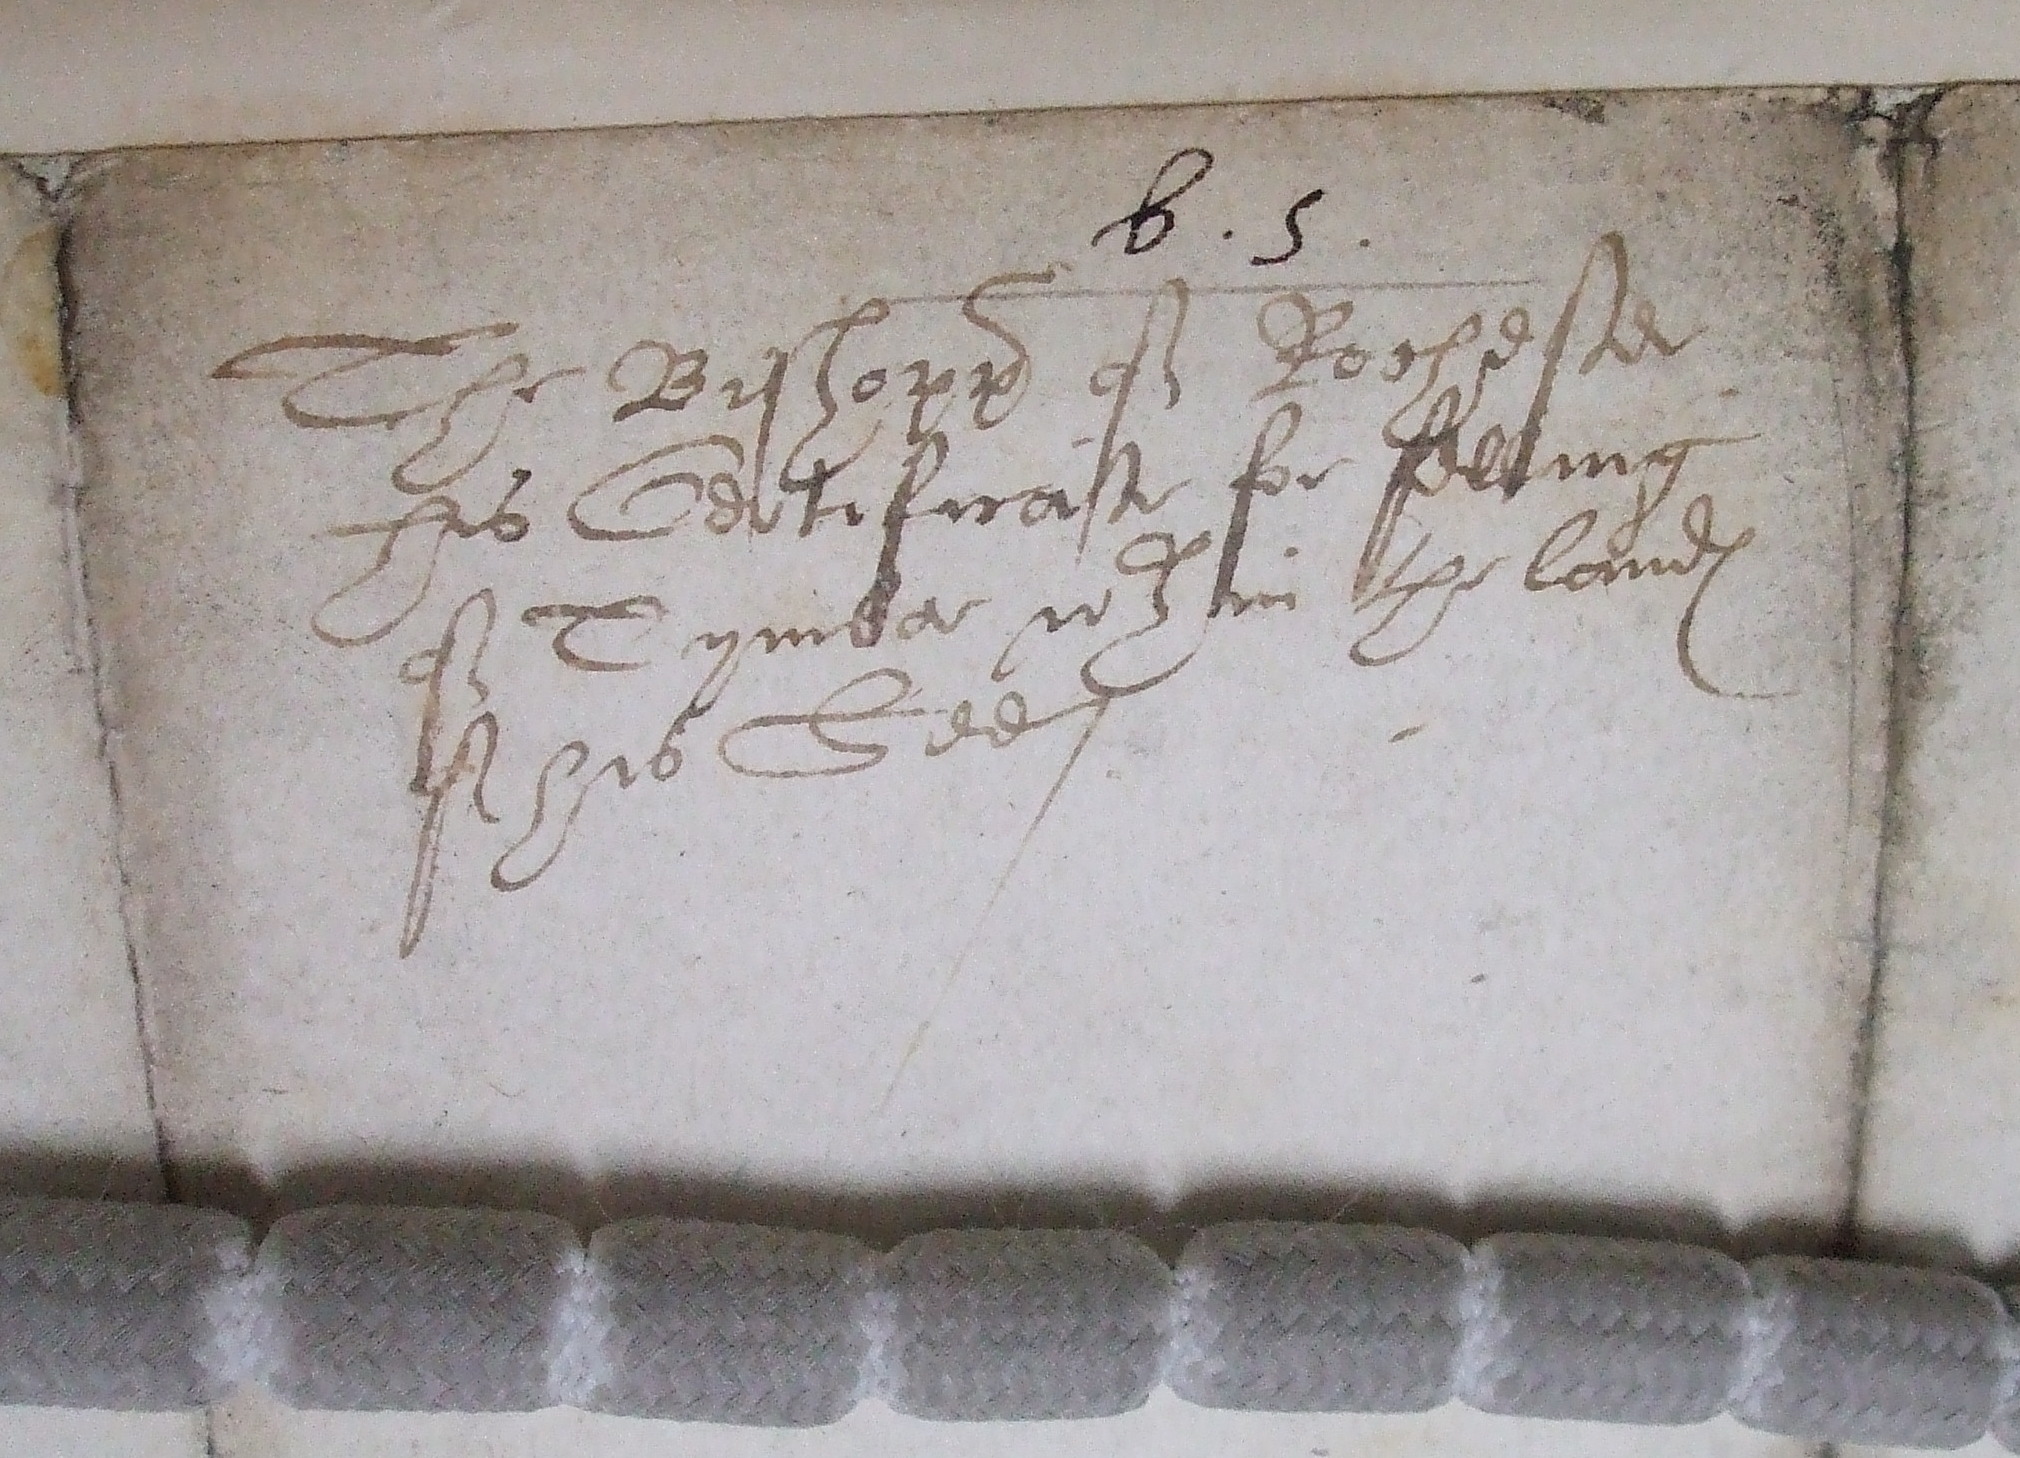 b . 5 .
The Bishopp of Rochester
his Certificate for felling
of Tymber wthin the landes
of his See